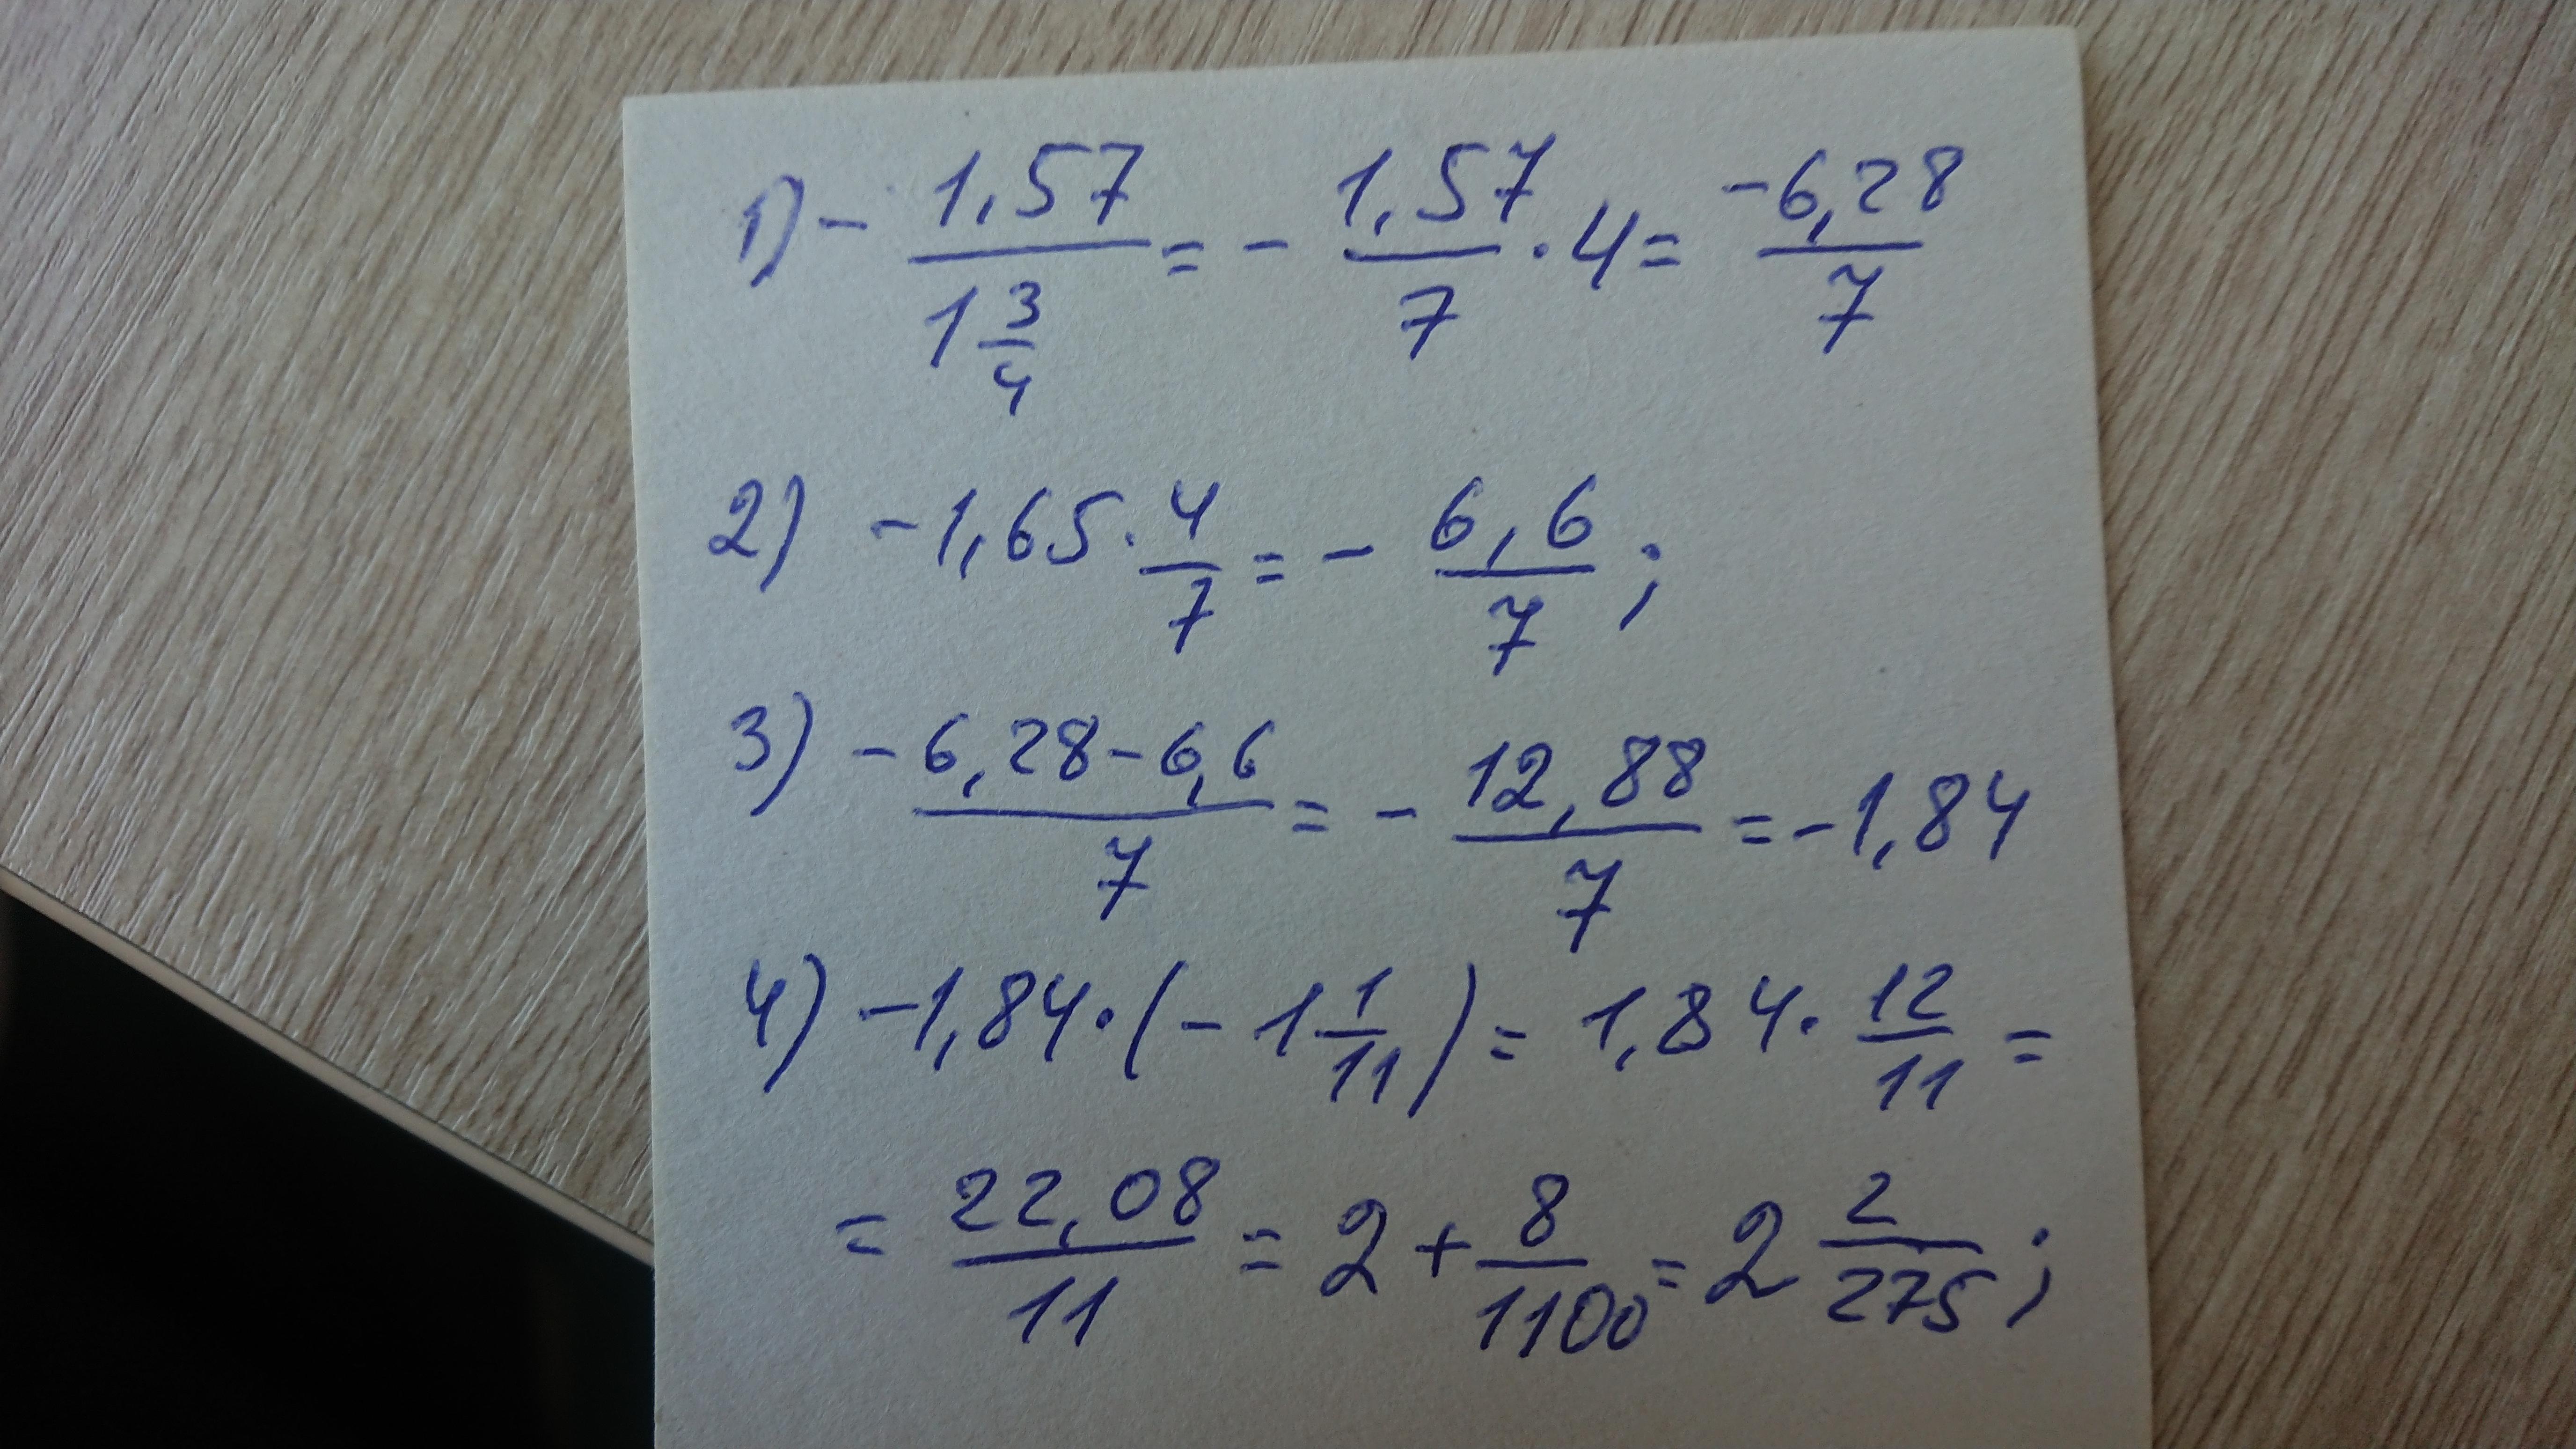 1) - 1,57 / 1 3/4 = - 1,57 / 7 · 4 = -6,28 / 7
2) -1,65 · 4/7 = - 6,6 / 7 ;
3) - 6,28 - 6,6 / 7 = - 12,88 / 7 = -1,84
4) -1,84 · (- 1 1/11) = 1,84 · 12/11 =
= 22,08 / 11 = 2 + 8/1100 = 2 2/275 ;